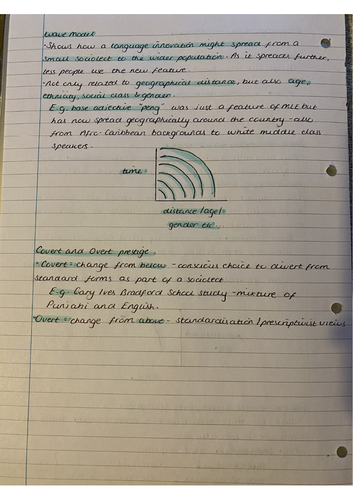 Wave Model
• Shows how a language innovation might spread from a
small sociolect to the wider population. As it spreads further,
less people use the new feature.
• Not only related to geographical distance, but also age,
ethnicity, social class & gender.
E.g. base adjective "peng" was just a feature of MLE but
has now spread geographically around the country - also
from Afro-Caribbean backgrounds to white middle class
speakers.
time
distance/age/
gender etc.
Covert and Overt prestige
• Covert = change from below - conscious choice to divert from
standard forms as part of a sociolect
E.g. Gary Ives Bradford School study - mixture of
Punjabi and English.
• Overt = change from above - standardisation/prescriptivist views